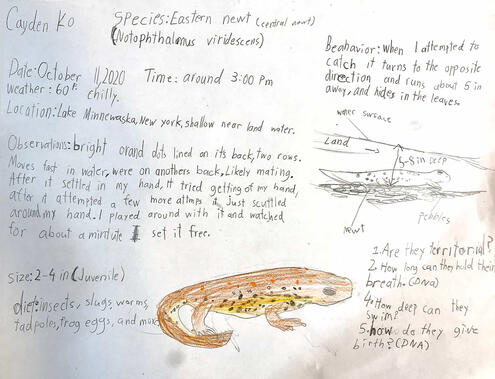 Cayden Ko
Species:Eastern newt (central newt)
(Notophthalmus viridescens)
Date:October 11,2020 Time: around 3:00 Pm
weather: 60°F chilly.
Location:Lake Minnewaska,New york,shallow near land water.
Observations:bright orand dots lined on its back, two rows.
Moves fast in water, were on anothers back, Likely mating.
After it settled in my hand, It tried getting of my hand,
after it attempted a few more attmps it just scuttled
around my hand. I played around with it and watched
for about a mintute I set it free.
size:2-4 in (Juvenile)
diet:insects, slugs, worms,
tadpoles, frog eggs, and more
Beahavior: When I attempted to
catch it turns to the opposite
direction and runs about 5 in
away, and hides in the leaves.
water surface
Land
5-8 in Deep
newt
pebbles
1.Are they territorial?
2. How long can they hold their
breath. (DNA)
4.How deep can they
swim?
5.how do they give
birth? (DNA)